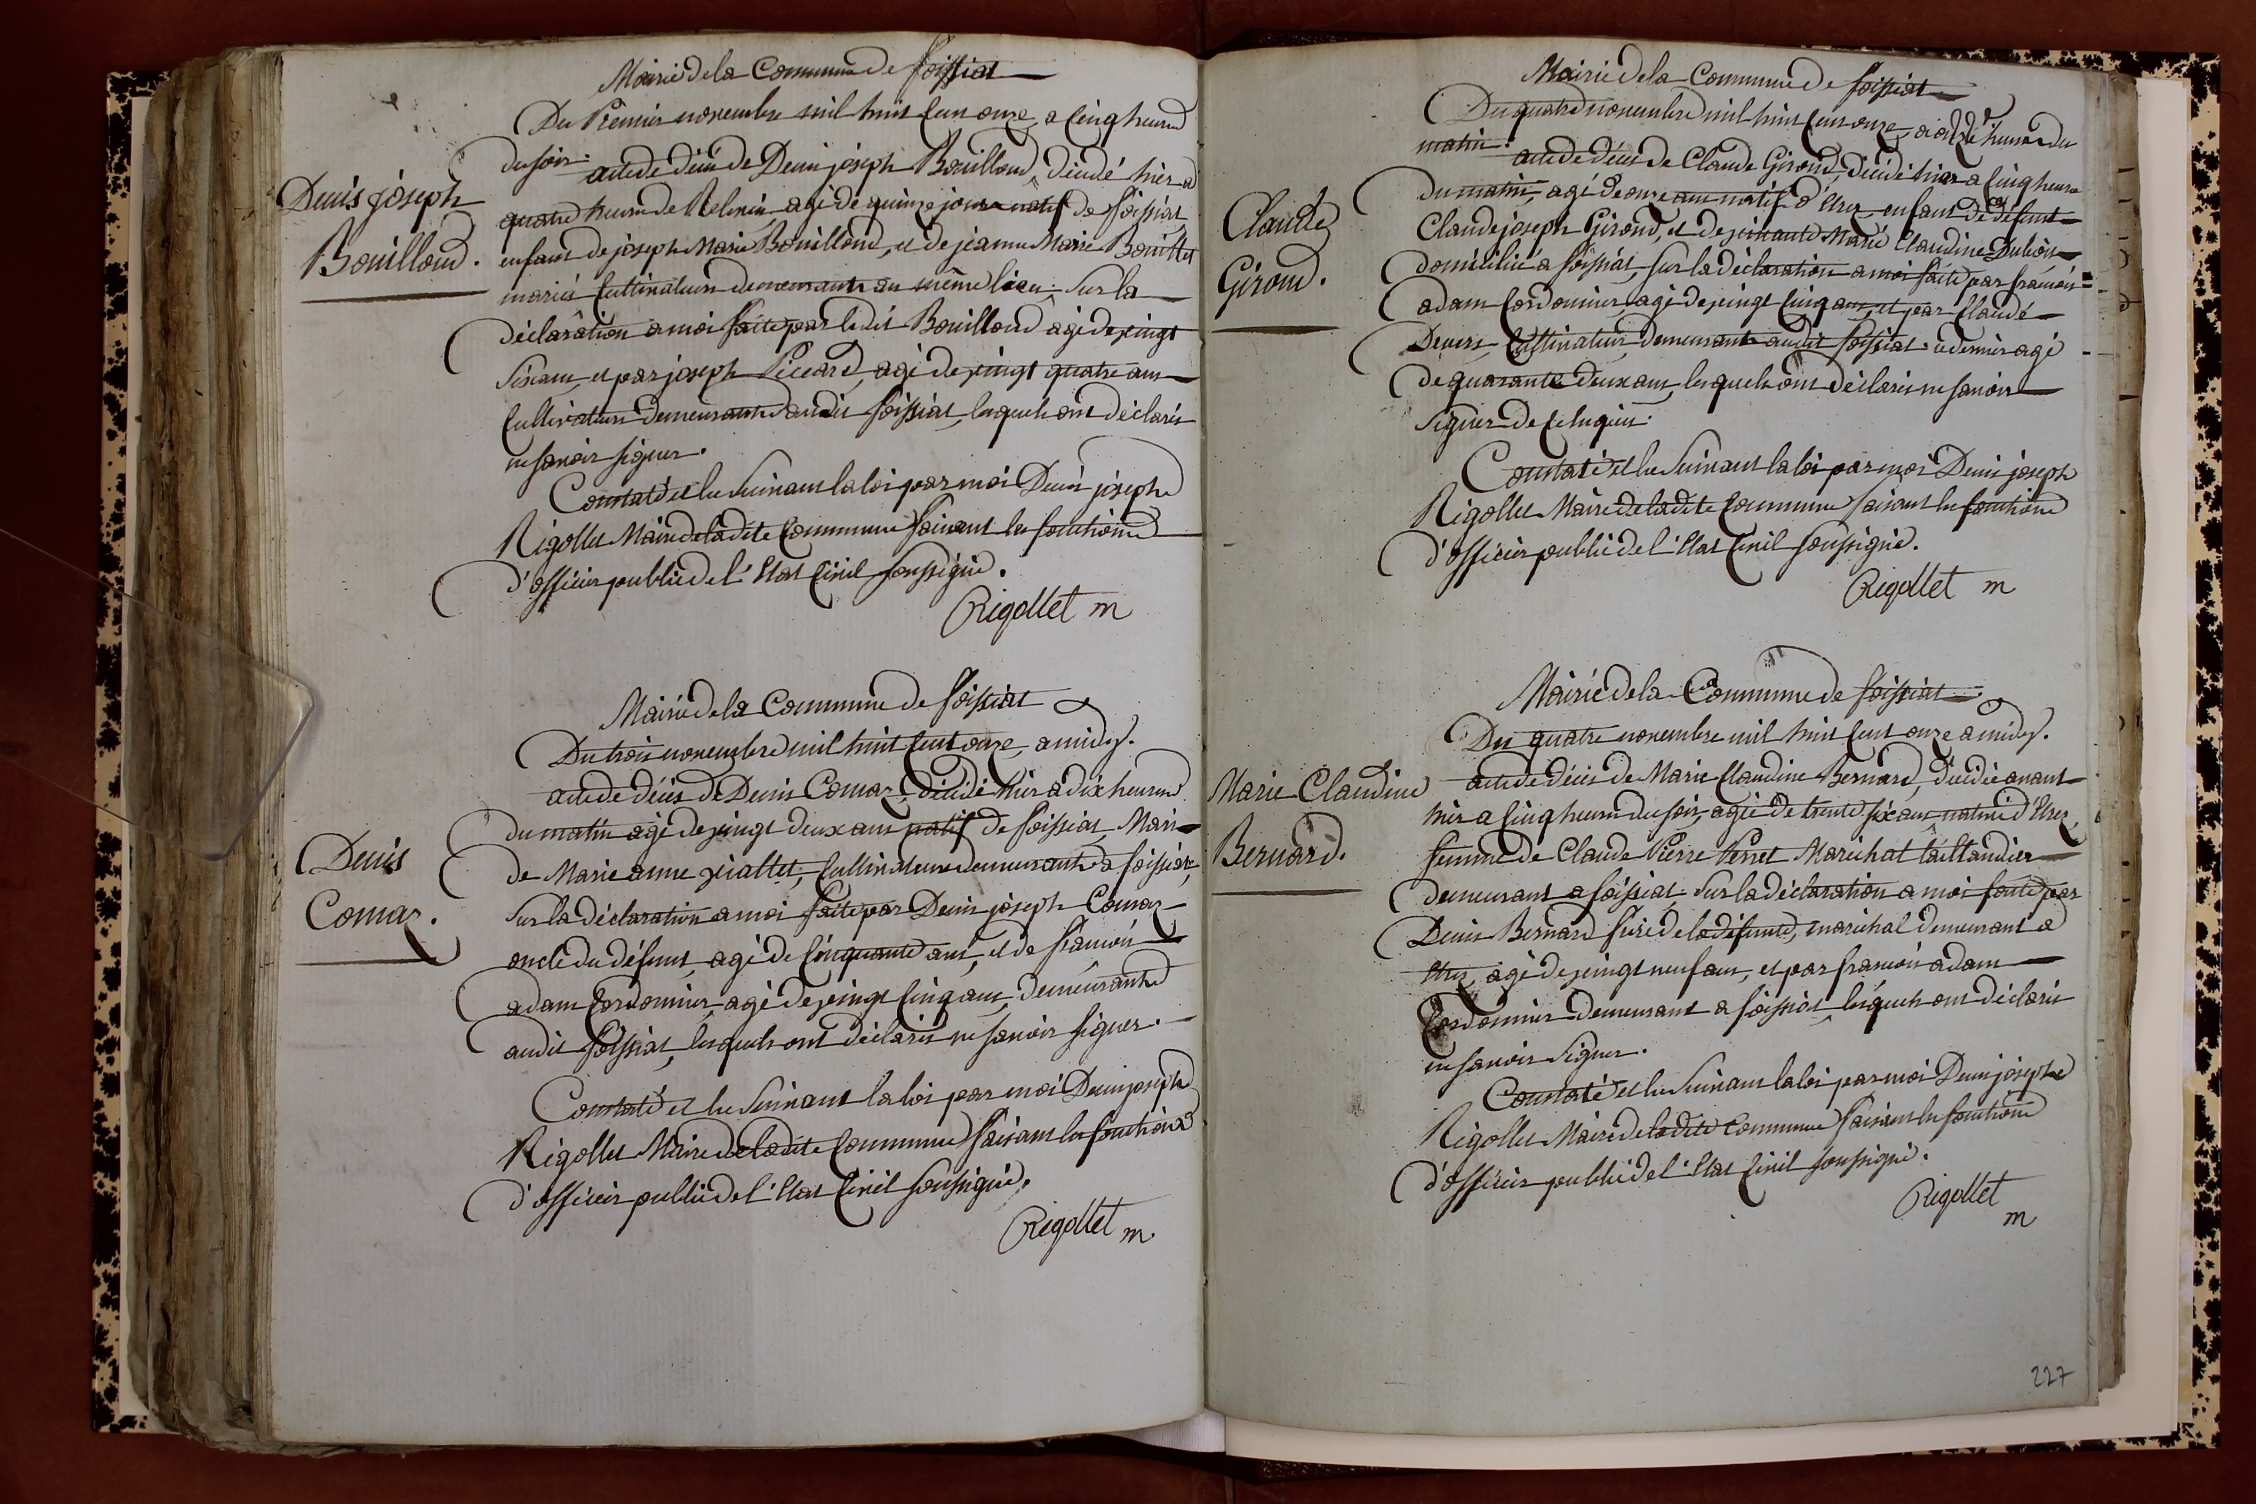 Mairie de la Commune de foissiat
Du Premier novembre mil huit Cent onze, a Cinq heures
du soir.
acte de décés de Denis joseph Bouilloud, décédé hier a
quatre heures de Relevée, agé de quinze jours natif de foissiat,
enfant de joseph Marie Bouilloud, et de jeanne Marie Bouillet
mariés Cultivateurs demeurants au même lieu, Sur la
déclaration a moi faite par le dit Bouilloud agé de vingt
Six ans, et par joseph Piccard, agé de vingt quatre ans
Cultivateurs demeurants audit foissiat, lesquels ont déclarés
ne savoir signer.
Constaté et lu Suivant la loi par moi Denis joseph
Rigollet Maire de ladite Commune faisant les fonctions
d'officier public de l'Etat Civil soussigné.
Rigollet m
Denis joseph
Bouilloud.
Mairie de la Commune de foissiat
Du trois novembre mil huit Cent onze, a midy.
acte de décés de Denis Comaz, décédé hier a dix heures
du matin agé de vingt deux ans natif de foissiat, Mari
de Marie anne viallet, Cultivateurs demeurants a foissiat,
Sur la déclaration a moi faite par Denis joseph Comaz
oncle du défunt, agé de Cinquante ans, et de francois
adam Cordonnier, agé de vingt Cinq ans, demeurants
audit foissiat, lesquels ont déclarés ne savoir signer.
Constaté et lu Suivant la loi par moi Denis joseph
Rigollet Maire de ladite Commune faisant les fonctions
d'officier public de l'Etat Civil soussigné.
Rigollet m.
Denis
Comaz.
Mairie de la Commune de foissiat
Du quatre novembre mil huit Cent onze, a heures du
matin.
acte de décés de Claude Giroud, décédé hier a Cinq heures
du matin, agé de onze ans natif d'Etrez, enfant de défunt
Claude joseph Giroud, et de vivante Marie Claudine Dubois
domiciliée a foissiat, sur la déclaration a moi faite par francois
adam Cordonnier, agé de vingt Cinq ans, et par Claude
Devers, Cultivateur, demeurants audit foissiat, cedernier agé
de quarante deux ans, lesquels ont déclarés ne savoir
Signer de Ce
Constaté et lu Suivant la loi par moi Denis joseph
Rigollet Maire de ladite Commune faisant les fonctions
d'officier public de l'Etat Civil soussigné.
Rigollet m
Claude
Giroud.
Mairie de la Commune de foissiat
Du quatre novembre mil huit Cent onze a midy.
acte de décés de Marie Claudine Bernard, décédée avant
hier a Cinq heures du soir, agée de trente six ans native d'Etrez,
femme de Claude Pierre Perret Maréchal taillandier
demeurant a foissiat, Sur la déclaration a moi faite par
Denis Bernard frère de la défunte, maréchal demeurant a
Etrez, agé de vingt neuf ans, et par francois adam
Cordonnier demeurant a foissiat, lesquels ont déclarés
ne savoir Signer.
Constaté et lu Suivant la loi par moi Denis joseph
Rigollet Maire de ladite Commune faisant les fonctions
d'officier public de l'Etat Civil soussigné.
Rigollet
m
Marie Claudine
Bernard.
227